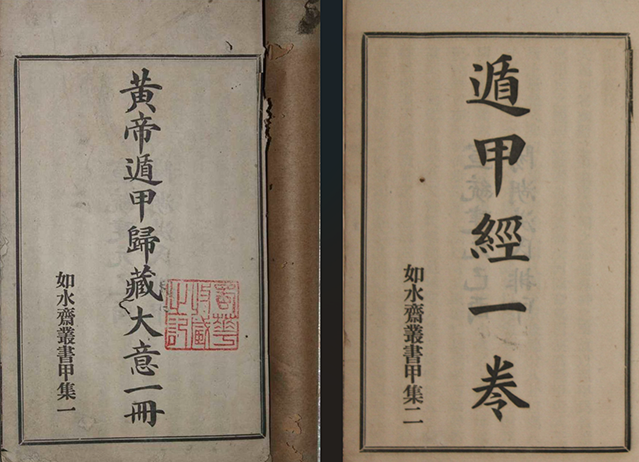 黃帝遁甲歸藏大意一冊
如水齋叢書甲集一
遁甲經一卷
如水齋叢書甲集二